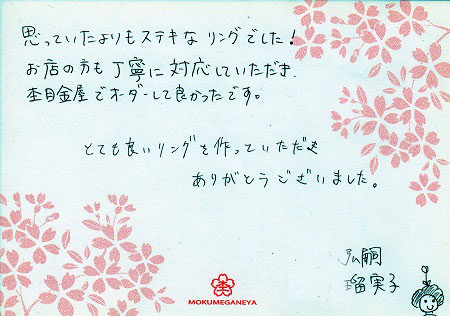 思っていたよりもステキなリングでした！
お店の方も丁寧に対応していただき、
杢目金屋でオーダーして良かったです。
とても良いリングを作っていただき
ありがとうございました。
弘嗣
瑠実子
MOKUMEGANEYA